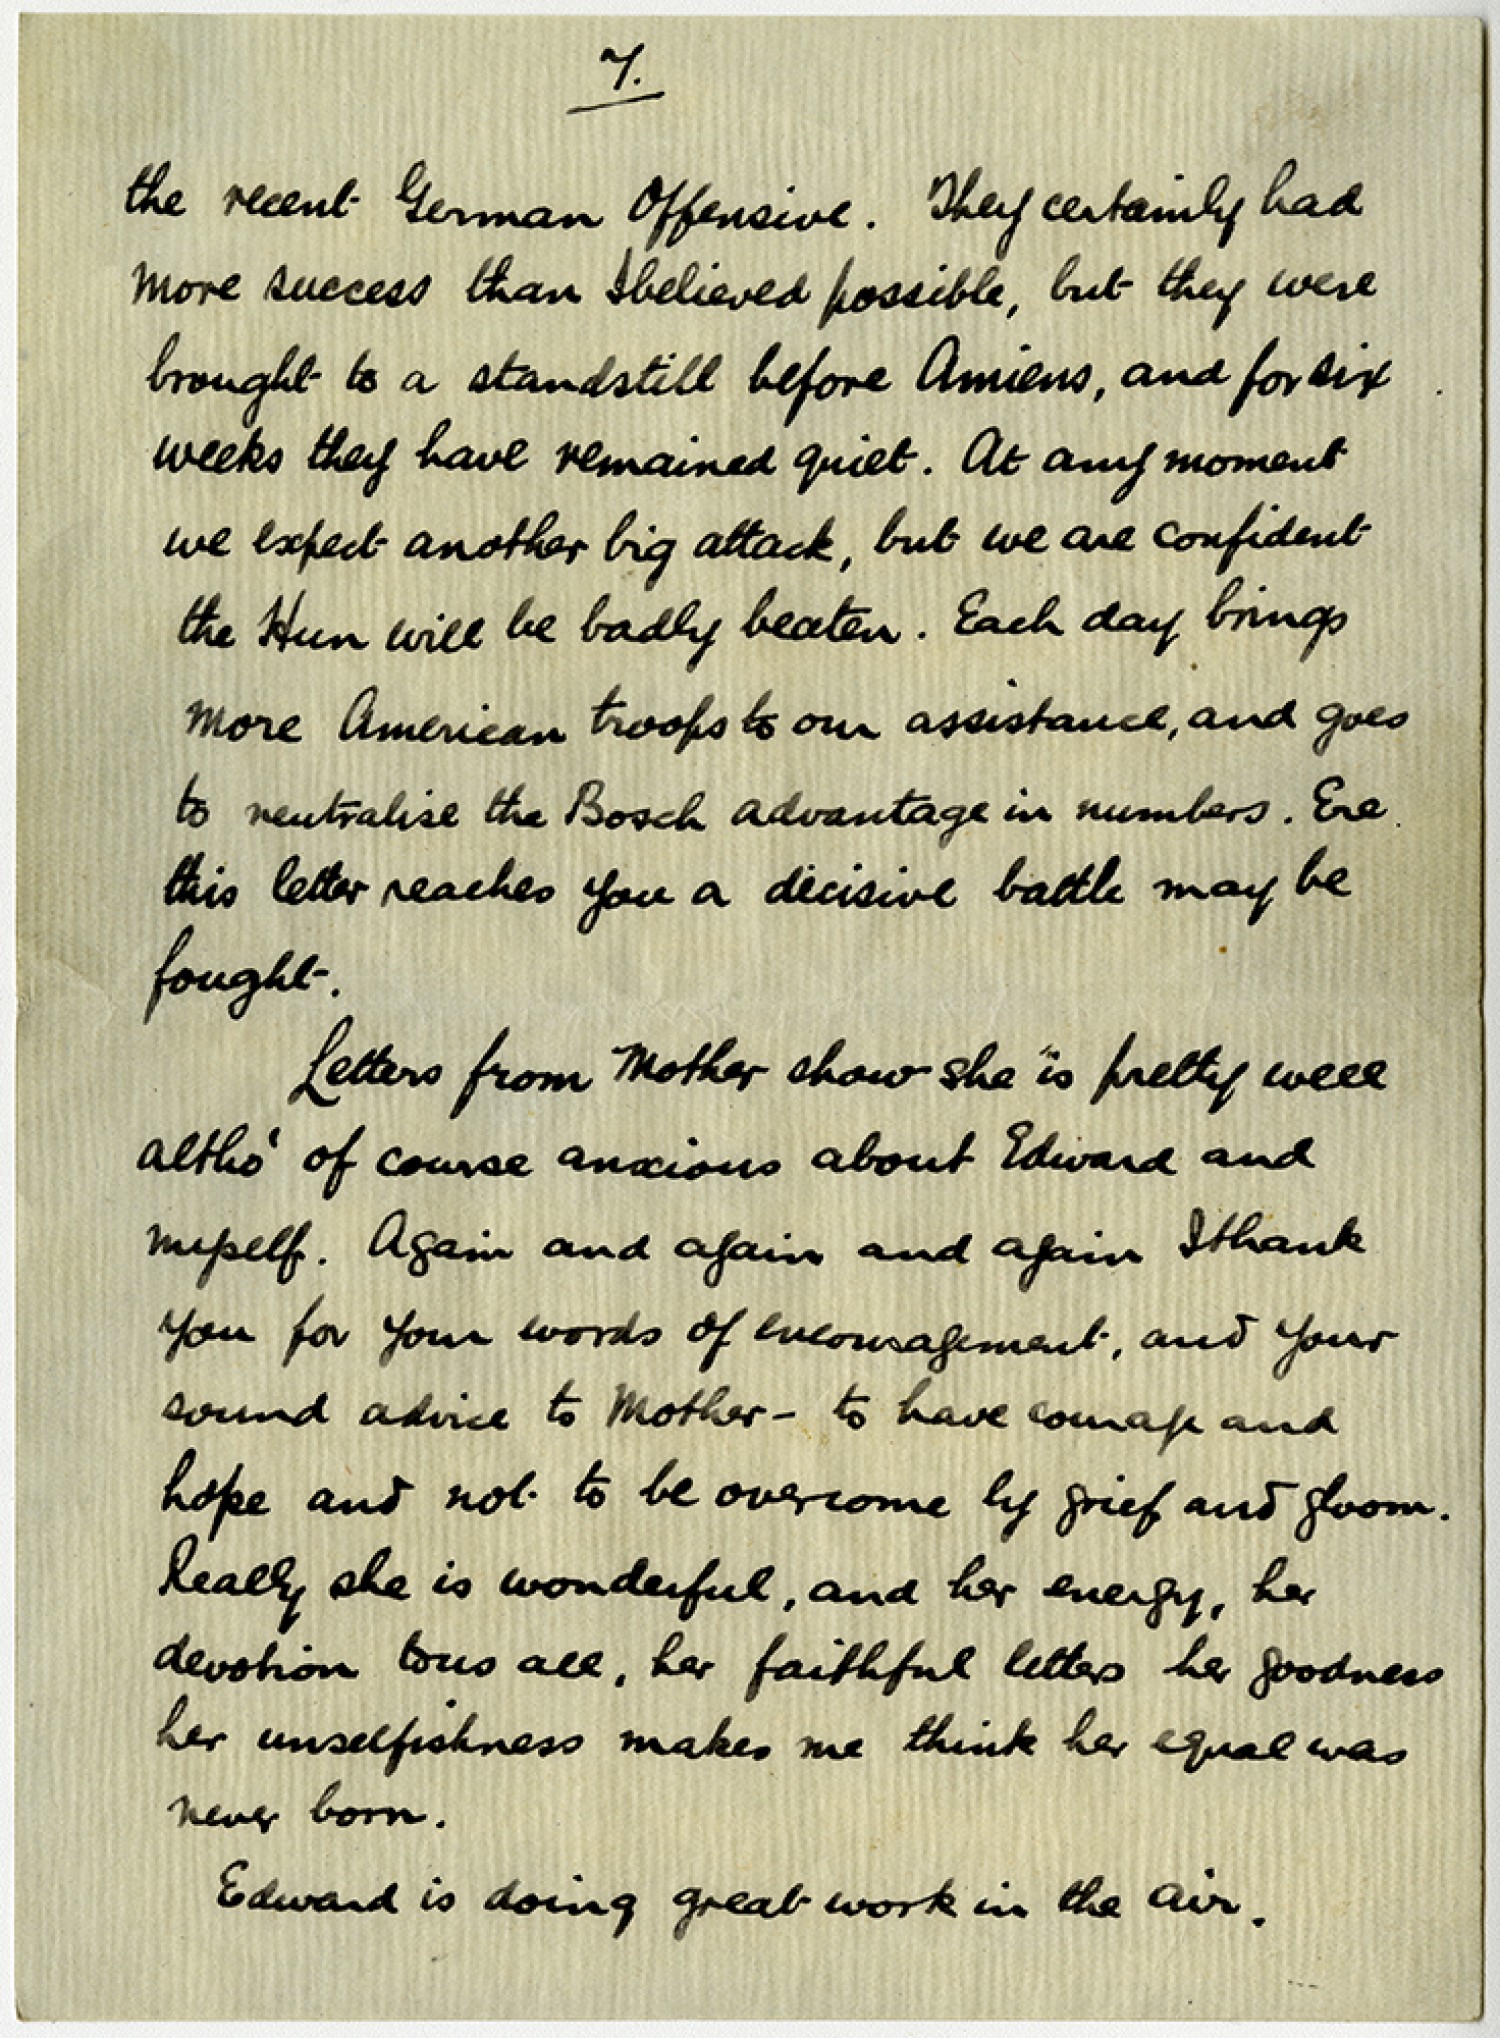 7.
the recent German Offensive. They certainly had
more success than I believed possible, but they were
brought to a standstill before Amiens, and for six
weeks they have remained quiet. At any moment
we expect another big attack, but we are confident
the Hun will be badly beaten. Each day brings
more American troops to our assistance, and goes
to neutralise the Bosch advantage in numbers. Ere
this letter reaches you a decisive battle may be
fought.
Letters from Mother show she is pretty well
altho' of course anxious about Edward and
myself. Again and again and again I thank
you for your words of encouragement, and your
sound advice to Mother - to have courage and
hope and not to be overcome by grief and gloom.
Really she is wonderful, and her energy, her
devotion to us all, her faithful letters her goodness
her unselfishness makes me think her equal was
never born.
Edward is doing great work in the air.